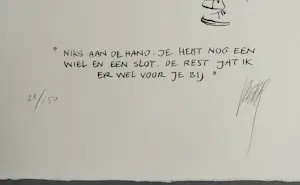 " NIKS AAN DE HAND. JE HEBT NOG EEN
WIEL EN EEN SLOT. DE REST JAT IK
ER WEL VOOR JE BIJ "
/150